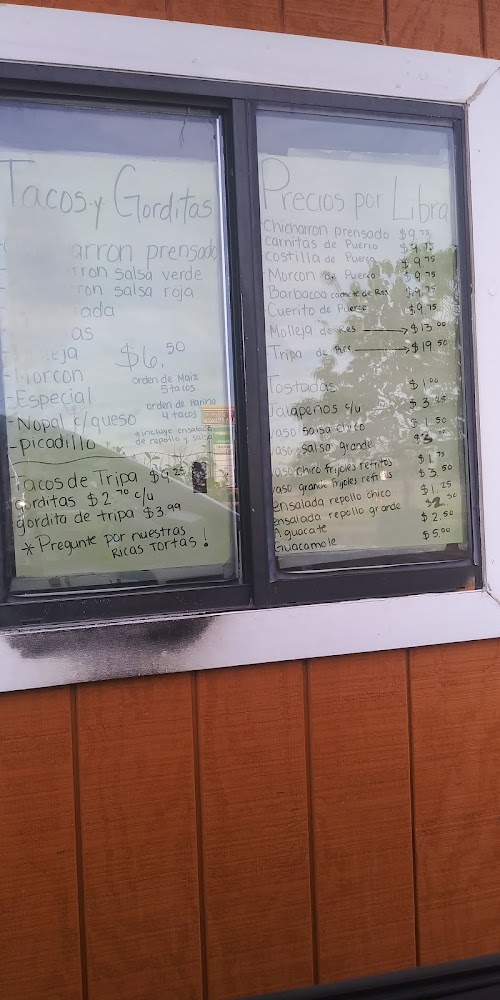 Tacos y Gorditas
arron prensado
rron salsa verde
on salsa roja
ada
as
eja
$6.50
-Morcon
orden de Maiz
5 tacos
-Especial
orden de Harina
4 tacos
-Nopal c/queso
-picadillo
incluye ensalada
de repollo y salsa
Tacos de Tripa $9.25
Gorditas $2.70 c/u
gordita de tripa $3.99
* Pregunte por nuestras
Ricas TORTAS!
Precios por Libra
Chicharron prensado $9.75
carnitas de Puerco $9.75
costilla de Puerco $9.75
Morcon de Puerco $9.75
Barbacoa carne de Res $9.75
Cuerito de Puerco $9.75
Molleja de Res → $13.00
Tripa de Res → $19.50
Tostadas $1.00
Jalapeños c/u $3.25
vaso salsa chico $1.50
vaso salsa grande $3.
vaso chico frijoles refritos $1.75
vaso grande frijoles refritos $3.50
ensalada repollo chico $1.25
ensalada repollo grande $2.50
Aguacate $2.50
Guacamole $5.00